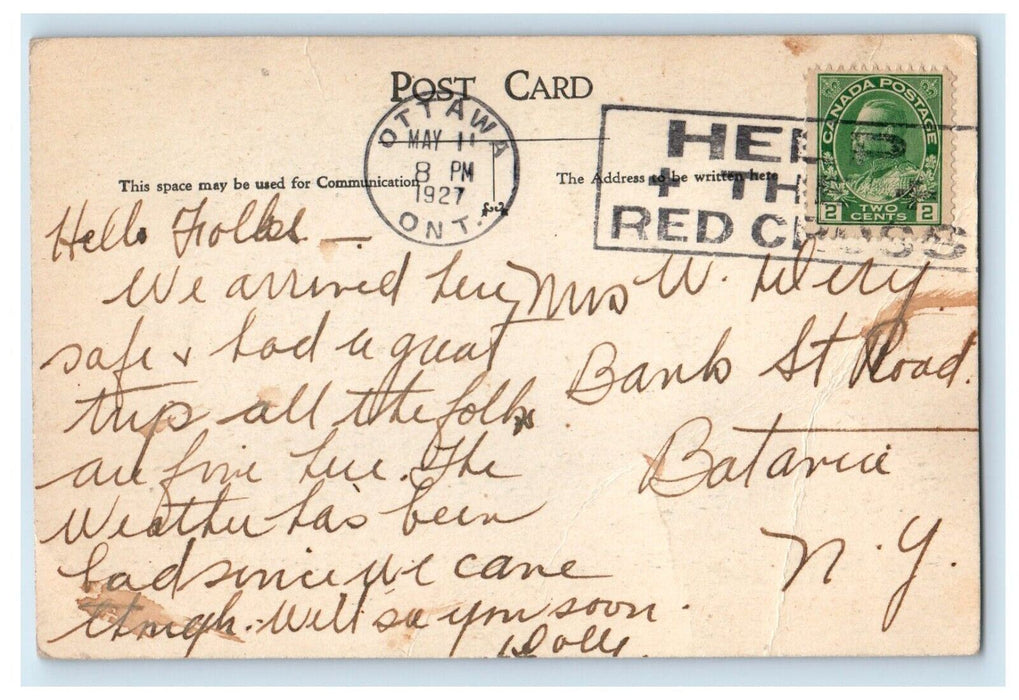 POST CARD
OTTAWA
MAY 11
8 PM
1927
ONT.
HELP
+ THE
RED CROSS
CANADA POSTAGE
2 TWO CENTS 2
This space may be used for Communication
The Address to be written here
Hello Folks. —
We arrived here
safe & had a great
trip all the folks
are fine here. The
Weather has been
bad since we came
though. Will see you soon.
Mrs W.
Bank St Road.
Batavia
N.Y.